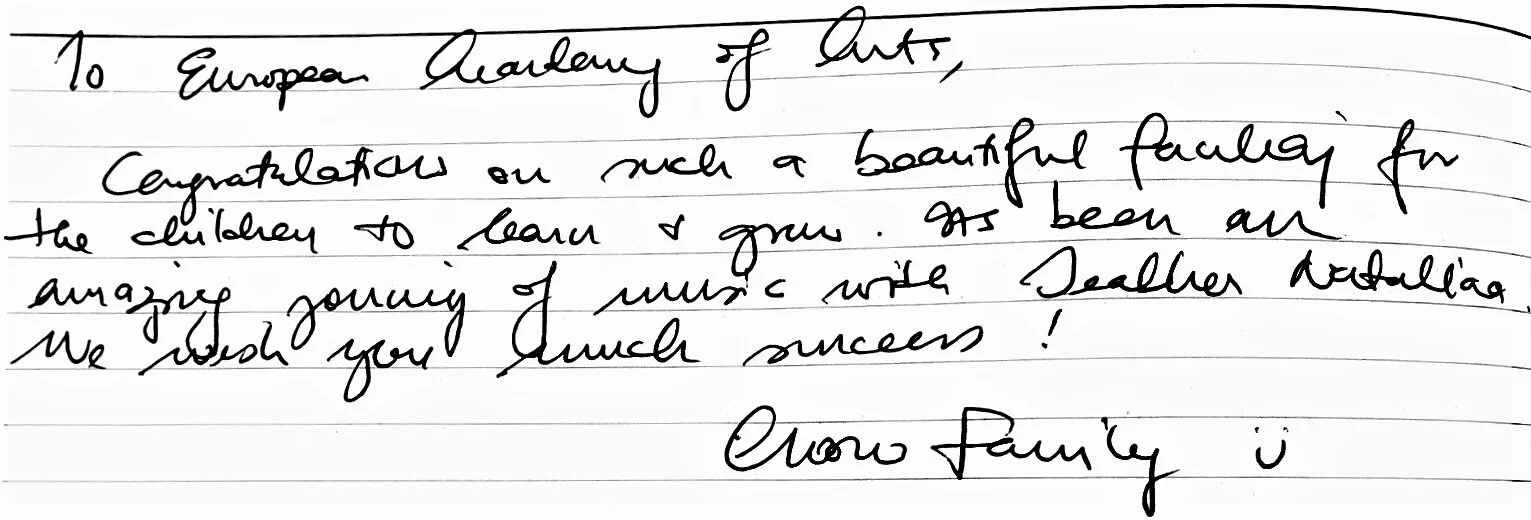 To European Academy of Arts,
Congratulations on such a beautiful facility for
the children to learn & grow. Its been an
amazing journey of music with Teacher Nataliaa.
We wish you much success!
Family